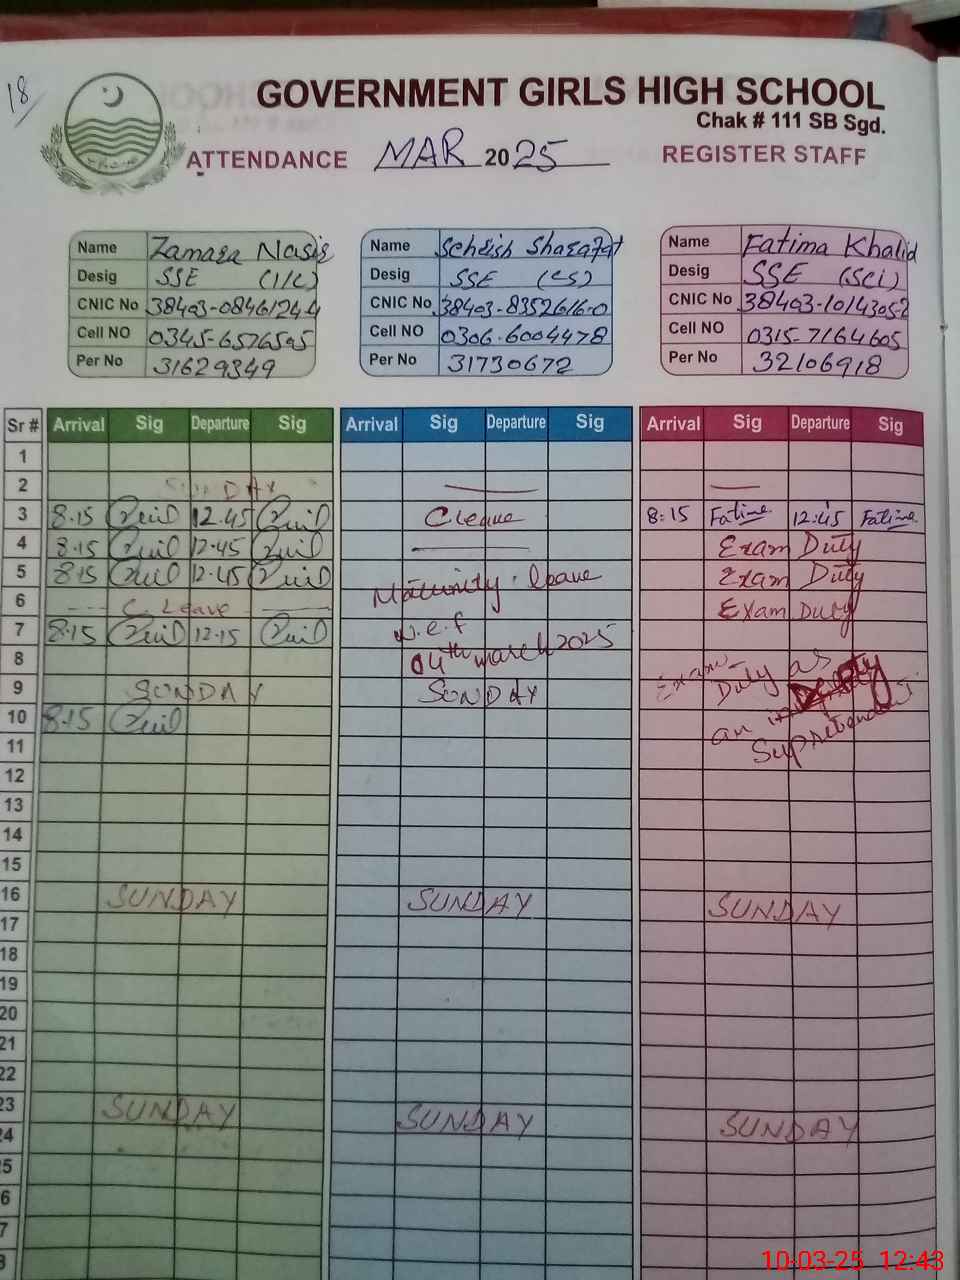 18/
GOVERNMENT GIRLS HIGH SCHOOL
Chak # 111 SB Sgd.
ATTENDANCE MAR 2025 REGISTER STAFF
Name Zamara Nasir
Desig SSE (I/C)
CNIC No 38403-0846124-4
Cell NO 0345-6576595
Per No 31629349
Name Sehrish Sharafat
Desig SSE (CS)
CNIC No 38403-8352616-0
Cell NO 0306-6004478
Per No 31730672
Name Fatima Khalid
Desig SSE (Sci)
CNIC No 38403-1014305-2
Cell NO 0315-7164605
Per No 32106918
Sr # Arrival Sig Departure Sig Arrival Sig Departure Sig Arrival Sig Departure Sig
1
2 SUNDAY
3 8.15 12.45 C leave 8:15 Fatima 12:45 Fatima
4 8.15 12.45 Exam Duty
5 8.15 12.45 Maturnity leave Exam Duty
6 C. Leave w.e.f Exam Duty
7 8.15 12.15 04th march 2025
8 Exam Duty as
9 SUNDAY SUNDAY an
10 8.15
11
12
13
14
15
16 SUNDAY SUNDAY SUNDAY
17
18
19
20
21
22
23 SUNDAY SUNDAY SUNDAY
24
5
6
7
8
10-03-25 12:43